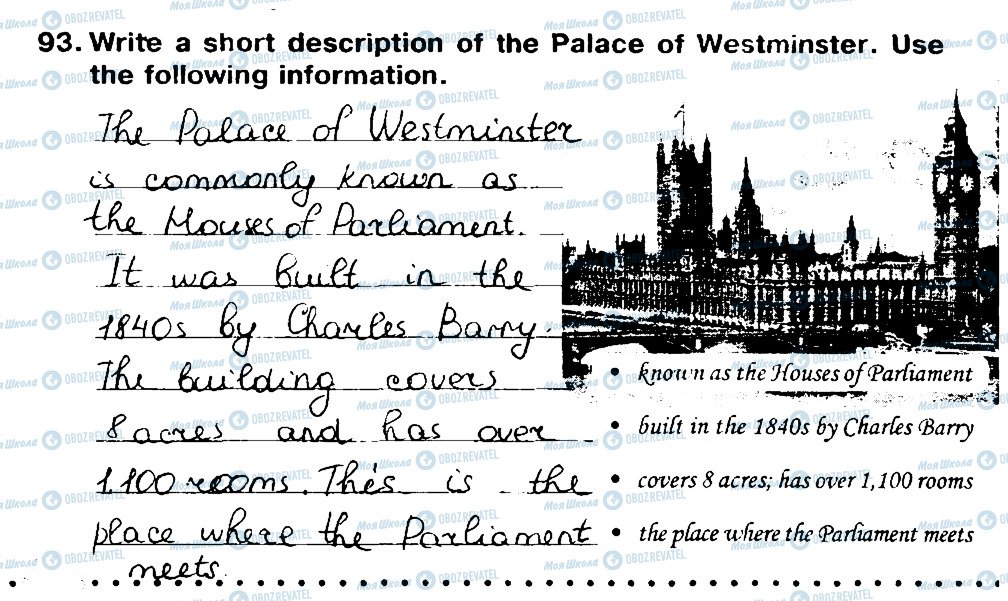 93. Write a short description of the Palace of Westminster. Use
the following information.
The Palace of Westminster
is commonly known as
the Houses of Parliament.
It was built in the
1840s by Charles Barry.
The building covers
8 acres and has over
1,100 rooms. This is the
place where the Parliament
meets.
• known as the Houses of Parliament
• built in the 1840s by Charles Barry
• covers 8 acres; has over 1,100 rooms
• the place where the Parliament meets
Моя Школа OBOZREVATEL